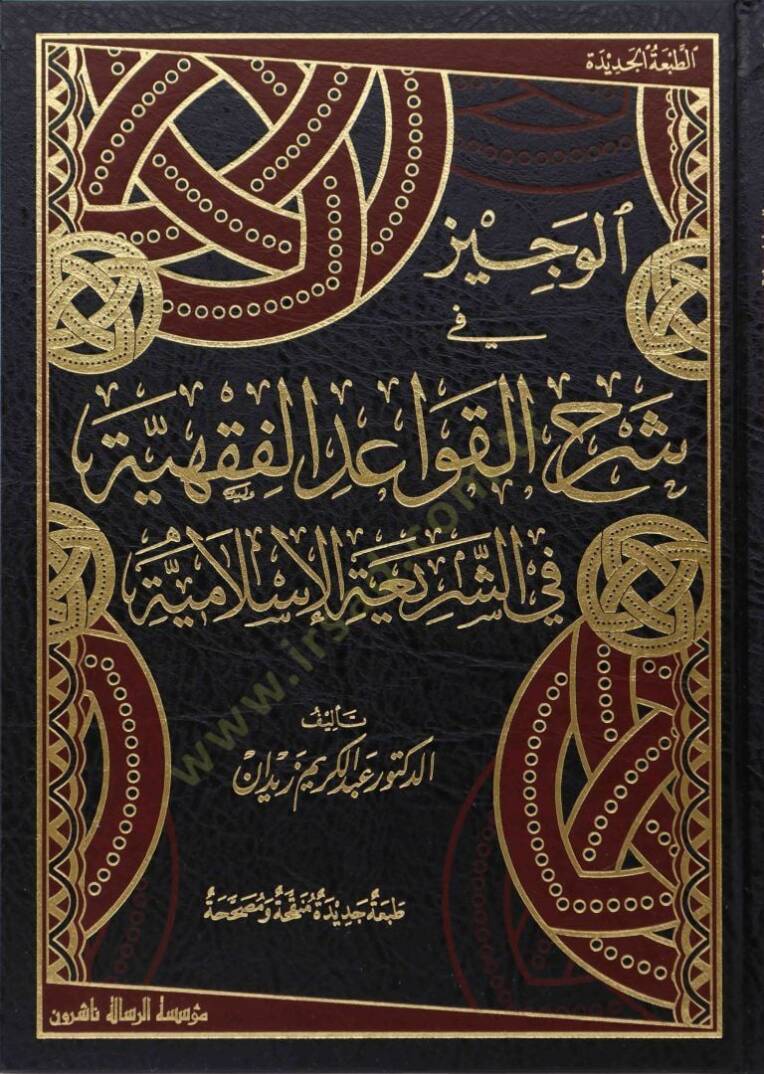 الطَّبْعَةُ الجَدِيْدَة
الوجيز
في
شرح القواعد الفقهية
في الشريعة الإسلامية
تأليف
الدكتور عبد الكريم زيدان
طبعة جديدة منقحة ومصححة
مؤسسة الرسالة ناشرون